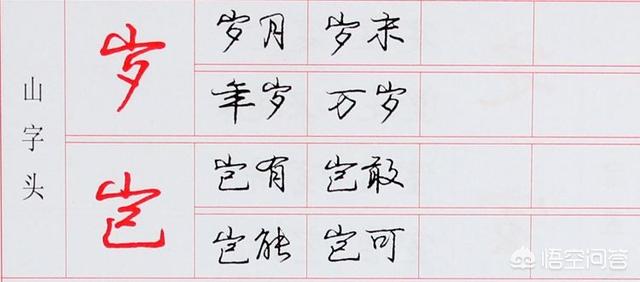 山字头
岁
岁月 岁末
年岁 万岁
岂
岂有 岂敢
岂能 岂可
悟空问答